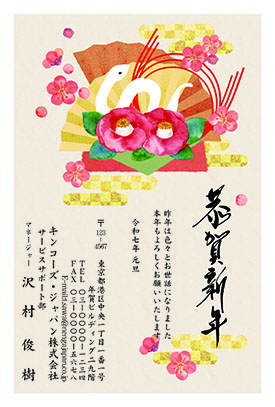 恭賀新年
昨年は色々とお世話になりました
本年もよろしくお願いいたします
令和七年 元旦
〒123-4567
東京都港区中央一丁目一番一号
年賀ビルディング二九階
キンコーズ・ジャパン株式会社
サービスサポート部
マネージャー 沢村 俊樹